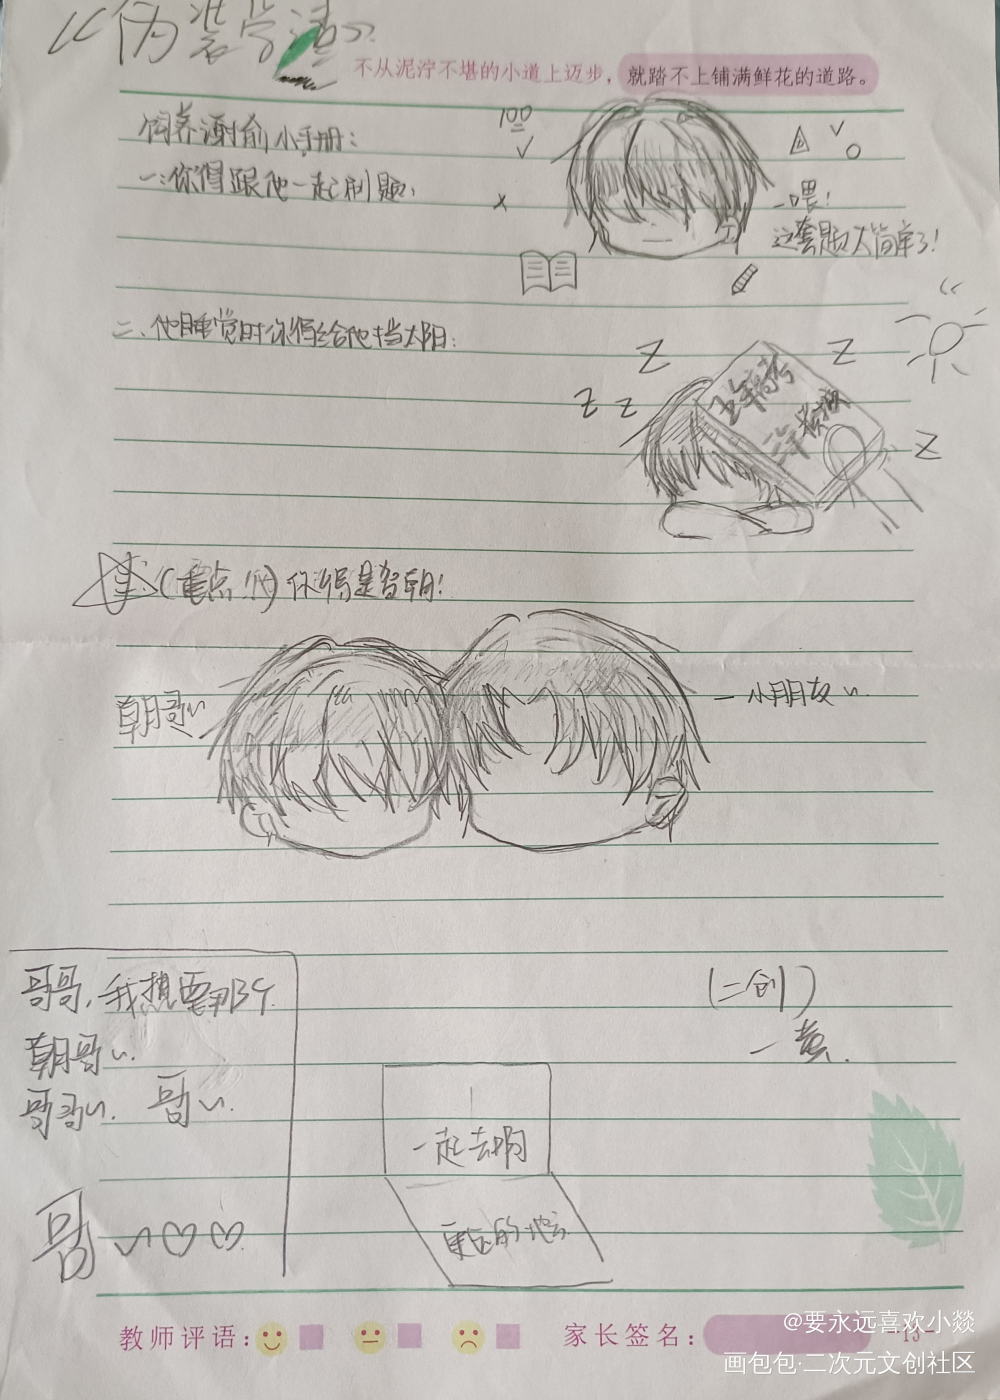 《伪装学渣》
不从泥泞不堪的小道上迈步，就踏不上铺满鲜花的道路。
饲养谢俞小手册：
一：你得跟他一起刷题：
100
一喂！
这套题太简单了！
二、他睡觉时你得给他挡太阳：
Z Z
Z Z
五年高考
三年模拟
Z
（重点！！）你得是贺朝！
朝哥~
一小朋友~
哥哥，我想要那个
朝哥~
哥哥~ 哥~
哥~♡♡
（二创）
一黄
一起去啊
更远的地方
教师评语：
家长签名：
-13-
@要永远喜欢小燚
画包包·二次元文创社区